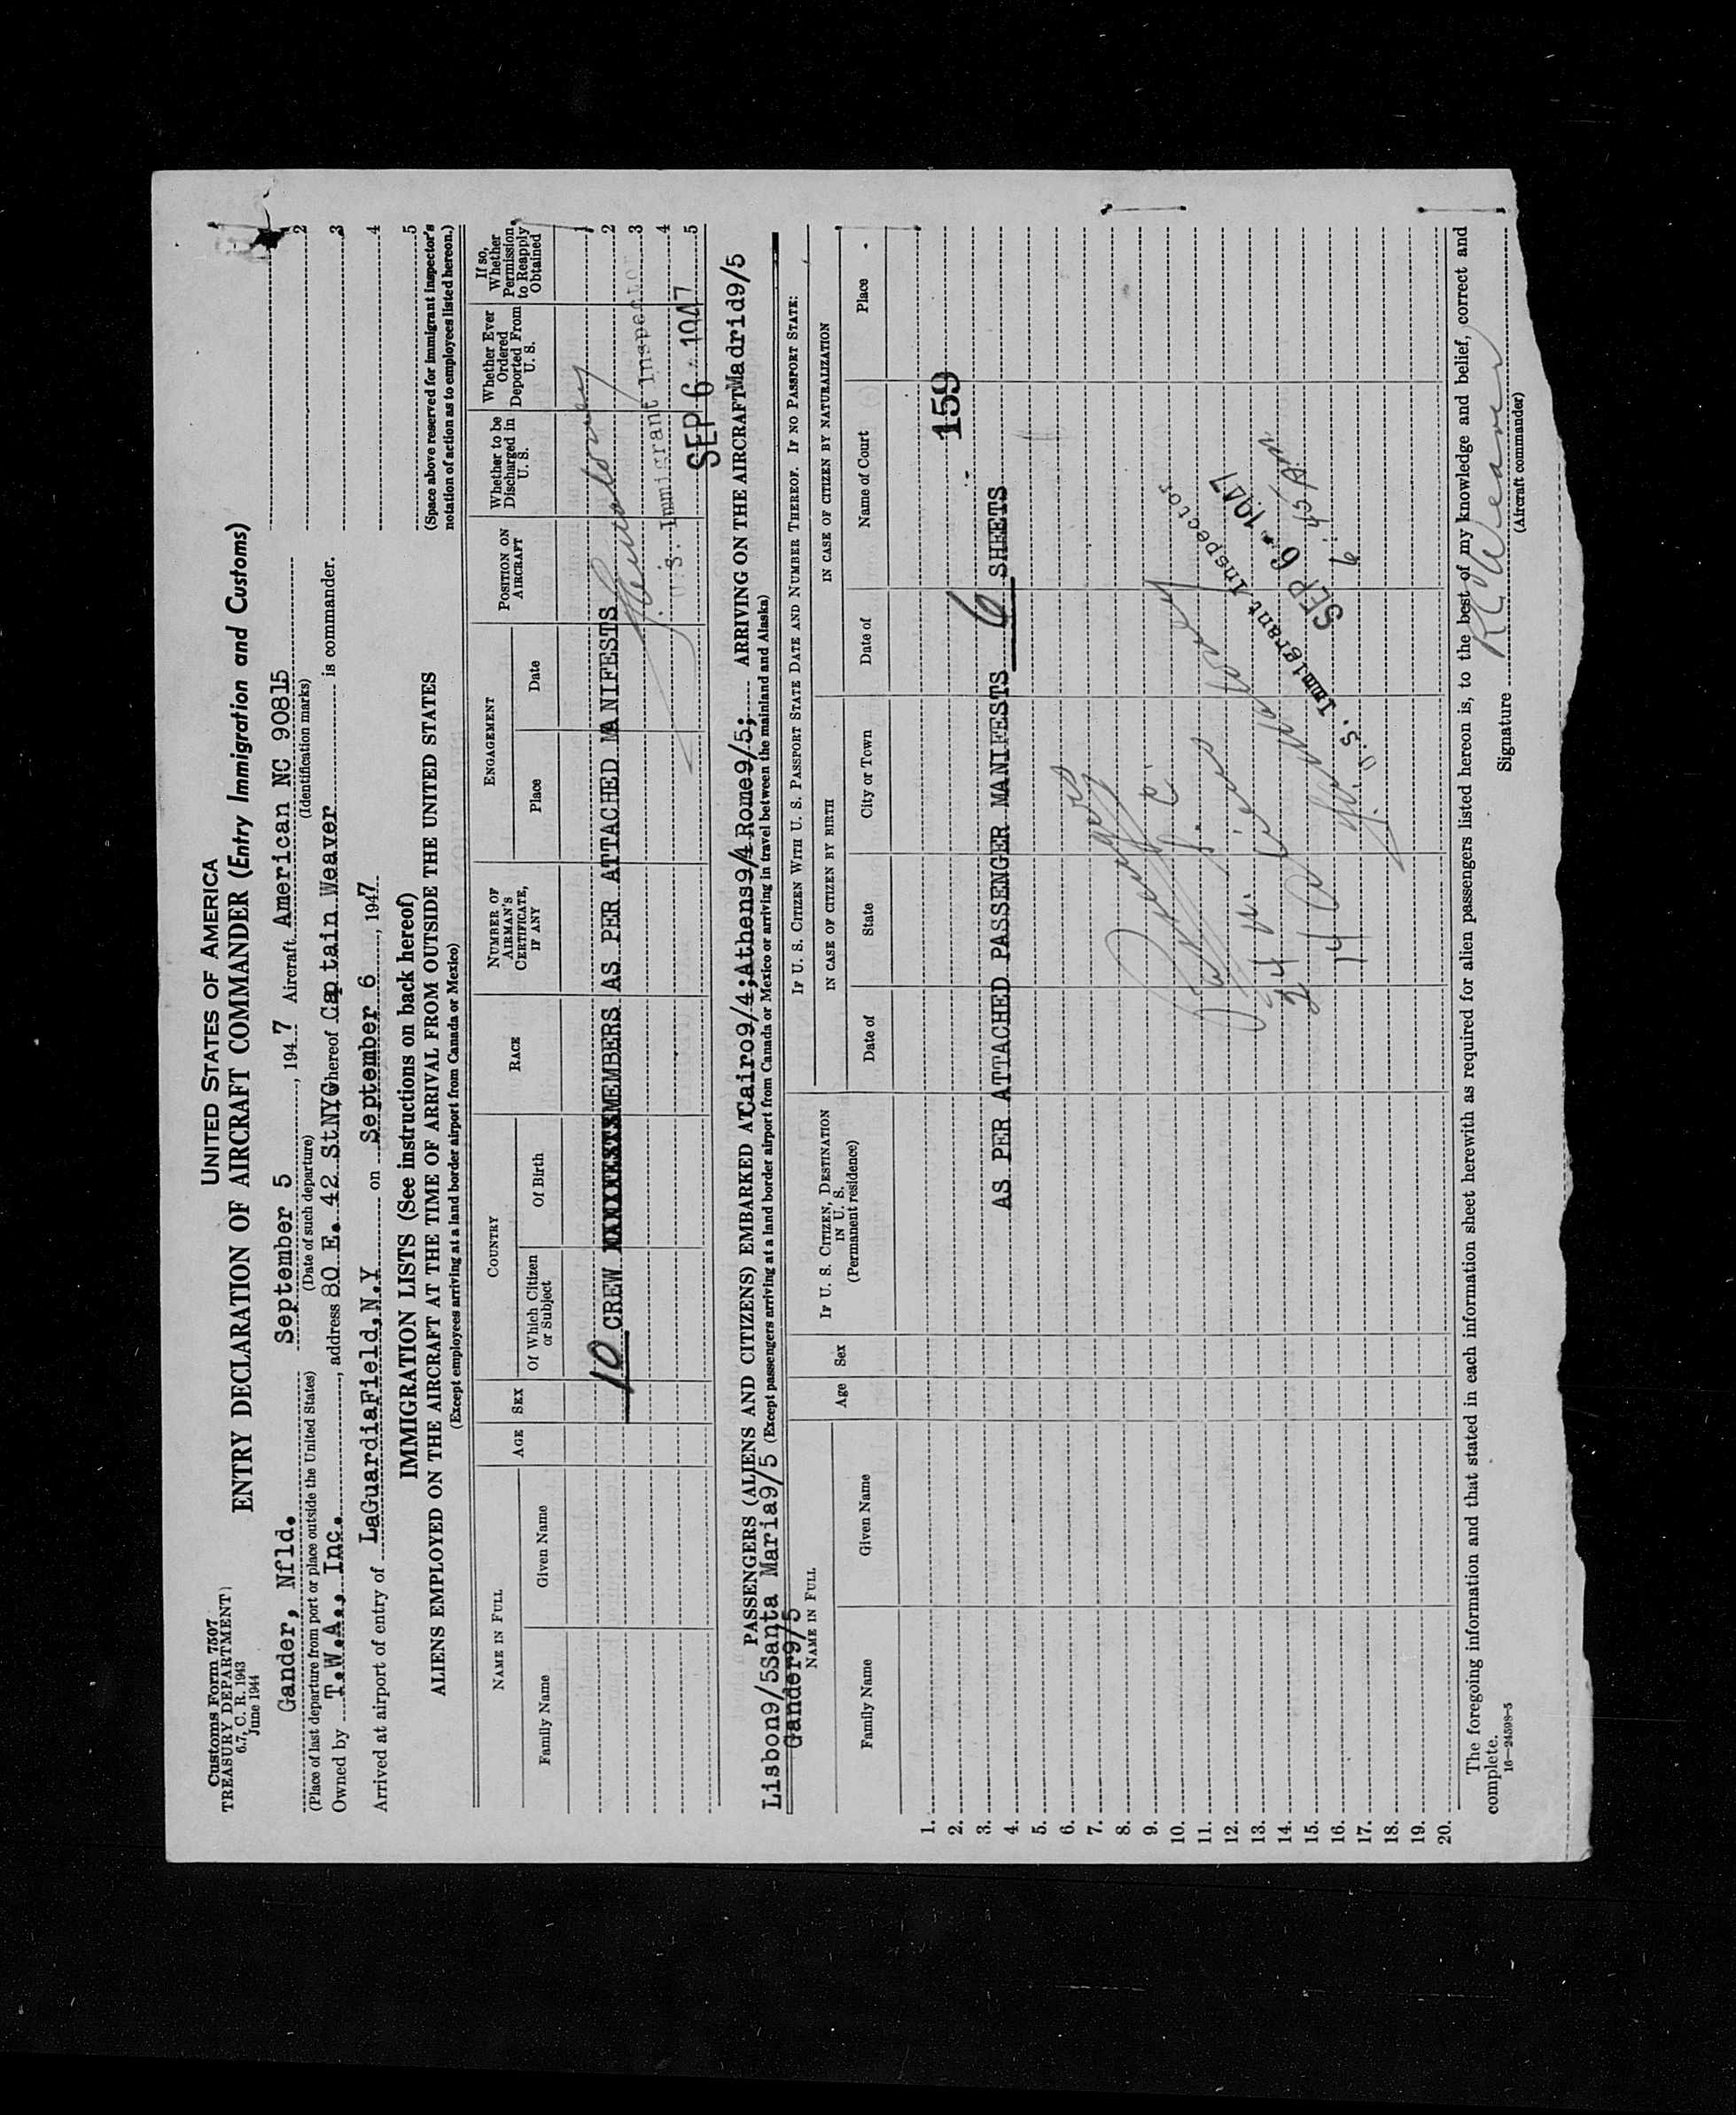 Customs Form 7507
TREASURY DEPARTMENT
6.7, C. R. 1943
June 1944
UNITED STATES OF AMERICA
ENTRY DECLARATION OF AIRCRAFT COMMANDER (Entry Immigration and Customs)
Gander, Nfld. September 5, 1947 Aircraft American NC 90815
(Place of last departure from port or place outside the United States) (Date of such departure) (Identification marks)
Owned by T.W.A., Inc., address 80 E. 42 StNYC whereof Captain Weaver is commander.
Arrived at airport of entry of LaGuardiaField,N.Y on September 6, 1947
2
3
4
5
(Space above reserved for immigrant inspector's
notation of action as to employees listed hereon.)
IMMIGRATION LISTS (See instructions on back hereof)
ALIENS EMPLOYED ON THE AIRCRAFT AT THE TIME OF ARRIVAL FROM OUTSIDE THE UNITED STATES
(Except employees arriving at a land border airport from Canada or Mexico)
NAME IN FULL
Family Name
Given Name
AGE
SEX
COUNTRY
Of Which Citizen
or Subject
Of Birth
RACE
NUMBER OF
AIRMAN'S
CERTIFICATE,
IF ANY
ENGAGEMENT
Place
Date
POSITION ON
AIRCRAFT
Whether to be
Discharged in
U. S.
Whether Ever
Ordered
Deported From
U. S.
If so,
Whether
Permission
to Reapply
Obtained
1
10 CREW MEMBERS AS PER ATTACHED MANIFESTS 2
3
U.S. Immigrant Inspector
4
SEP 6 - 1947
5
PASSENGERS (ALIENS AND CITIZENS) EMBARKED AT Cairo9/4;Athens9/4 Rome9/5; ARRIVING ON THE AIRCRAFT Madrid9/5
Lisbon9/5Santa Maria9/5 (Except passengers arriving at a land border airport from Canada or Mexico or arriving in travel between the mainland and Alaska)
Gander9/5
NAME IN FULL
Family Name
Given Name
Age
Sex
IF U. S. CITIZEN, DESTINATION
IN U. S.
(Permanent residence)
IF U. S. CITIZEN WITH U. S. PASSPORT STATE DATE AND NUMBER THEREOF. IF NO PASSPORT STATE:
IN CASE OF CITIZEN BY BIRTH
Date of
State
City or Town
IN CASE OF CITIZEN BY NATURALIZATION
Date of
Name of Court
Place
1.
2. 159
3.
4. AS PER ATTACHED PASSENGER MANIFESTS 6 SHEETS
5.
6.
7.
8.
9.
10.
11.
12.
13.
14.
15.
16.
17.
18.
19.
20.
U.S. Immigrant Inspector
SEP 6 - 1947
6:45 AM
The foregoing information and that stated in each information sheet herewith as required for alien passengers listed hereon is, to the best of my knowledge and belief, correct and
complete.
16—24598-5
Signature R C Weaver
(Aircraft commander)